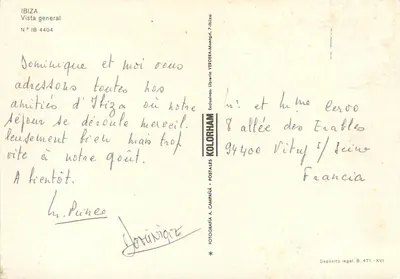 IBIZA
Vista general
N.º IB 4404
Dominique et moi vous
adressons toutes nos
amitiés d'Ibiza où notre
séjour se déroule merveil.
leusement bien mais trop
vite à notre goût.
A bientôt.
Dominique
FOTOGRAFIA A. CAMPAÑÁ - POSTALES KOLORHAM
Mr. et Mme Cerco
8 allée des Erables
94400 Vitry s/ Seine
Francia
Depósito legal B. 471-XVI